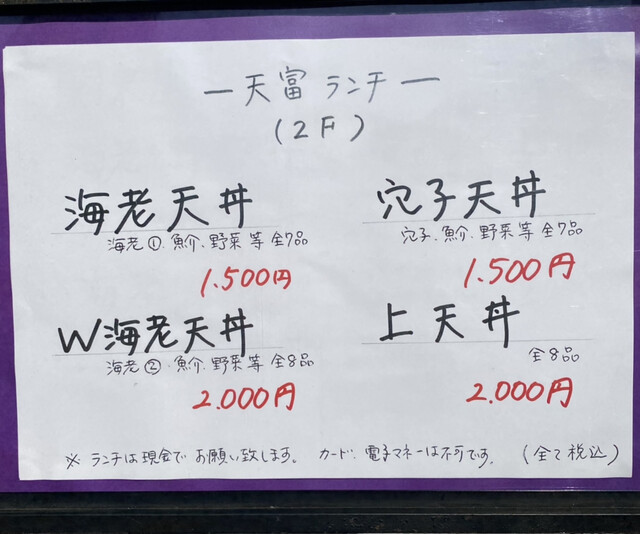 ー天富 ランチー
(2F)
海老天丼
海老①、魚介、野菜 等 全7品
1.500円
穴子天丼
穴子、魚介、野菜 等 全7品
1.500円
W海老天丼
海老②、魚介、野菜 等 全8品
2.000円
上天丼
全8品
2.000円
※ ランチは現金で お願い致します。 カード、電子マネーは不可です。 (全て税込)